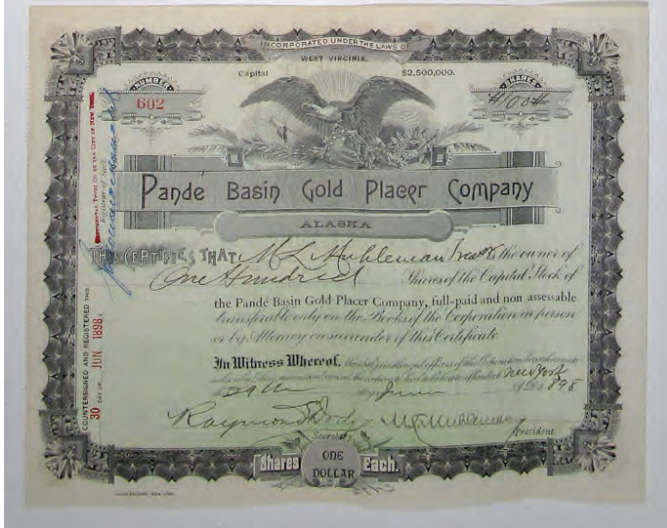 INCORPORATED UNDER THE LAWS OF
WEST VIRGINIA.
Capital $2,500,000.
NUMBER
602
SHARES
#100#
Pandé Basin Gold Placer Company
ALASKA
THIS CERTIFIES THAT M L Muhleman is the owner of
One Hundred Shares of the Capital Stock of
the Pandé Basin Gold Placer Company, full-paid and non assessable
transferable only on the Books of the Corporation in person
or by Attorney on surrender of this Certificate.
In Witness Whereof,
New York
29th June 1898
Raymond M L Muhleman
Secretary President
Shares ONE DOLLAR Each.
COUNTERSIGNED AND REGISTERED THIS
30 DAY OF JUN 1898
TRUST CO OF THE CITY OF NEW YORK
Registrar of Stock